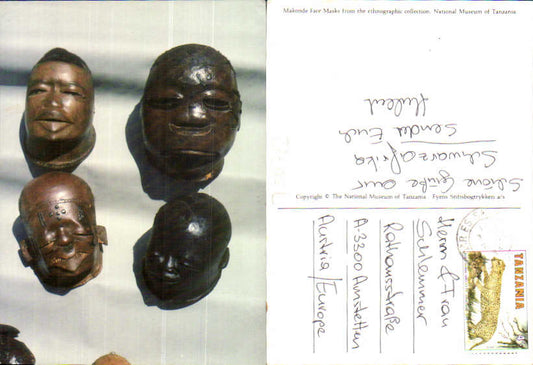 Makonde Face Masks from the ethnographic collection. National Museum of Tanzania
Schöne Grüße aus
Schwarzafrika
sendet Euch
Hubert
Copyright © The National Museum of Tanzania Fyens Stiftsbogtrykkeri a/s
Herrn & Frau
Schlemmer
Rathausstraße
A-3300 Amstetten
Austria/Europe
TANZANIA